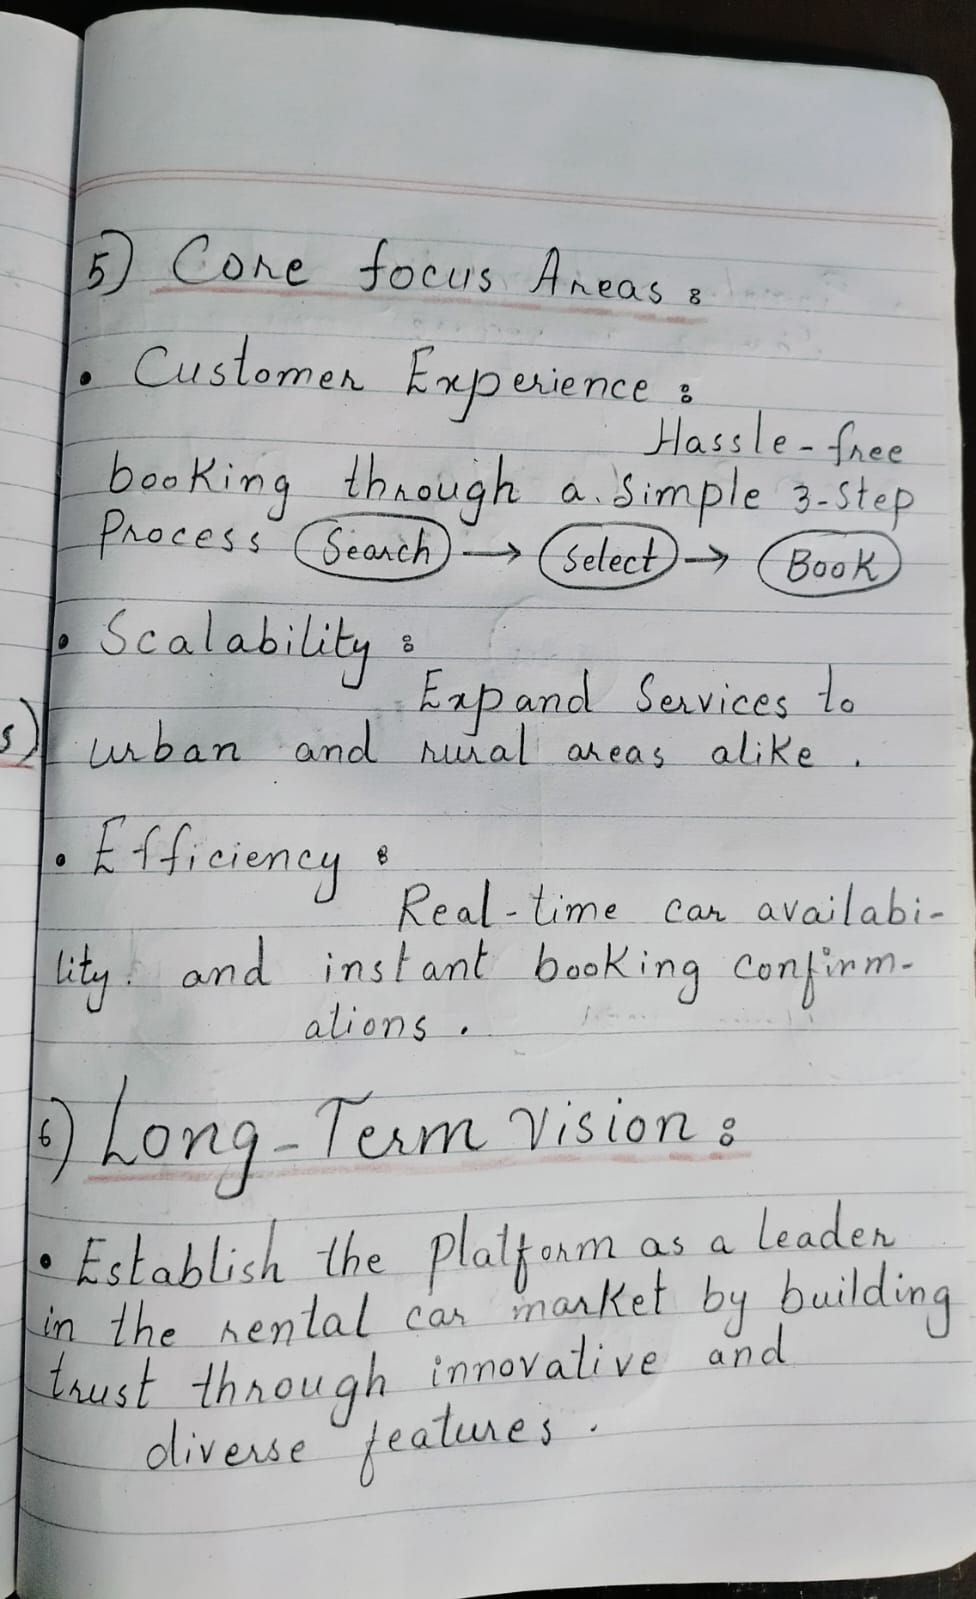 5) Core focus Areas :
• Customer Experience :
Hassle-free
booking through a simple 3-step
Process Search → Select → Book
• Scalability :
Expand Services to
urban and rural areas alike .
• Efficiency :
Real-time car availabi-
lity. and instant booking confirm-
ations .
6) Long-Term Vision :
• Establish the platform as a leader
in the rental car market by building
trust through innovative and
diverse features .
s)